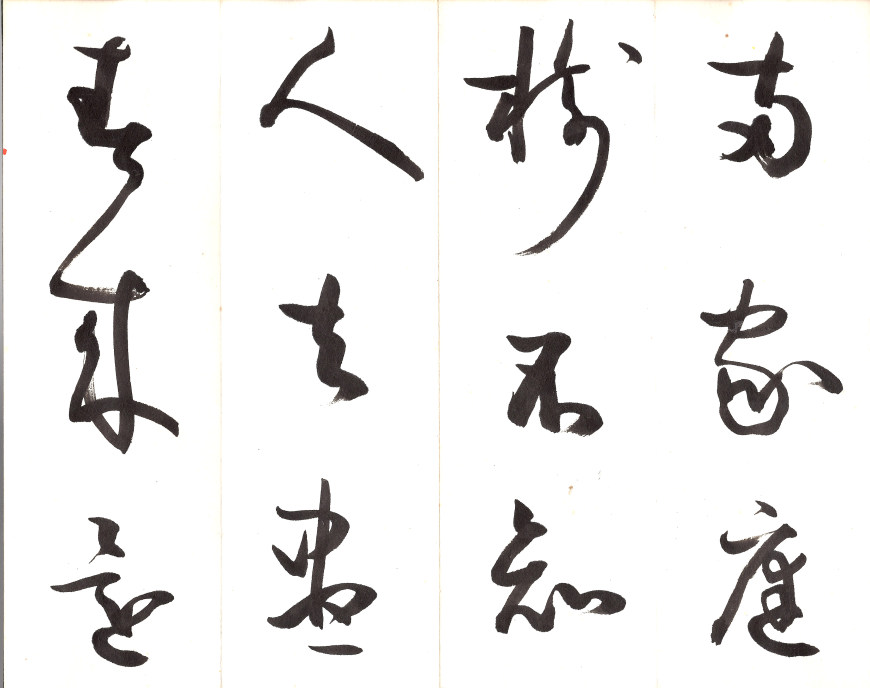 兩家庭
樹不知
人去盡
春來還